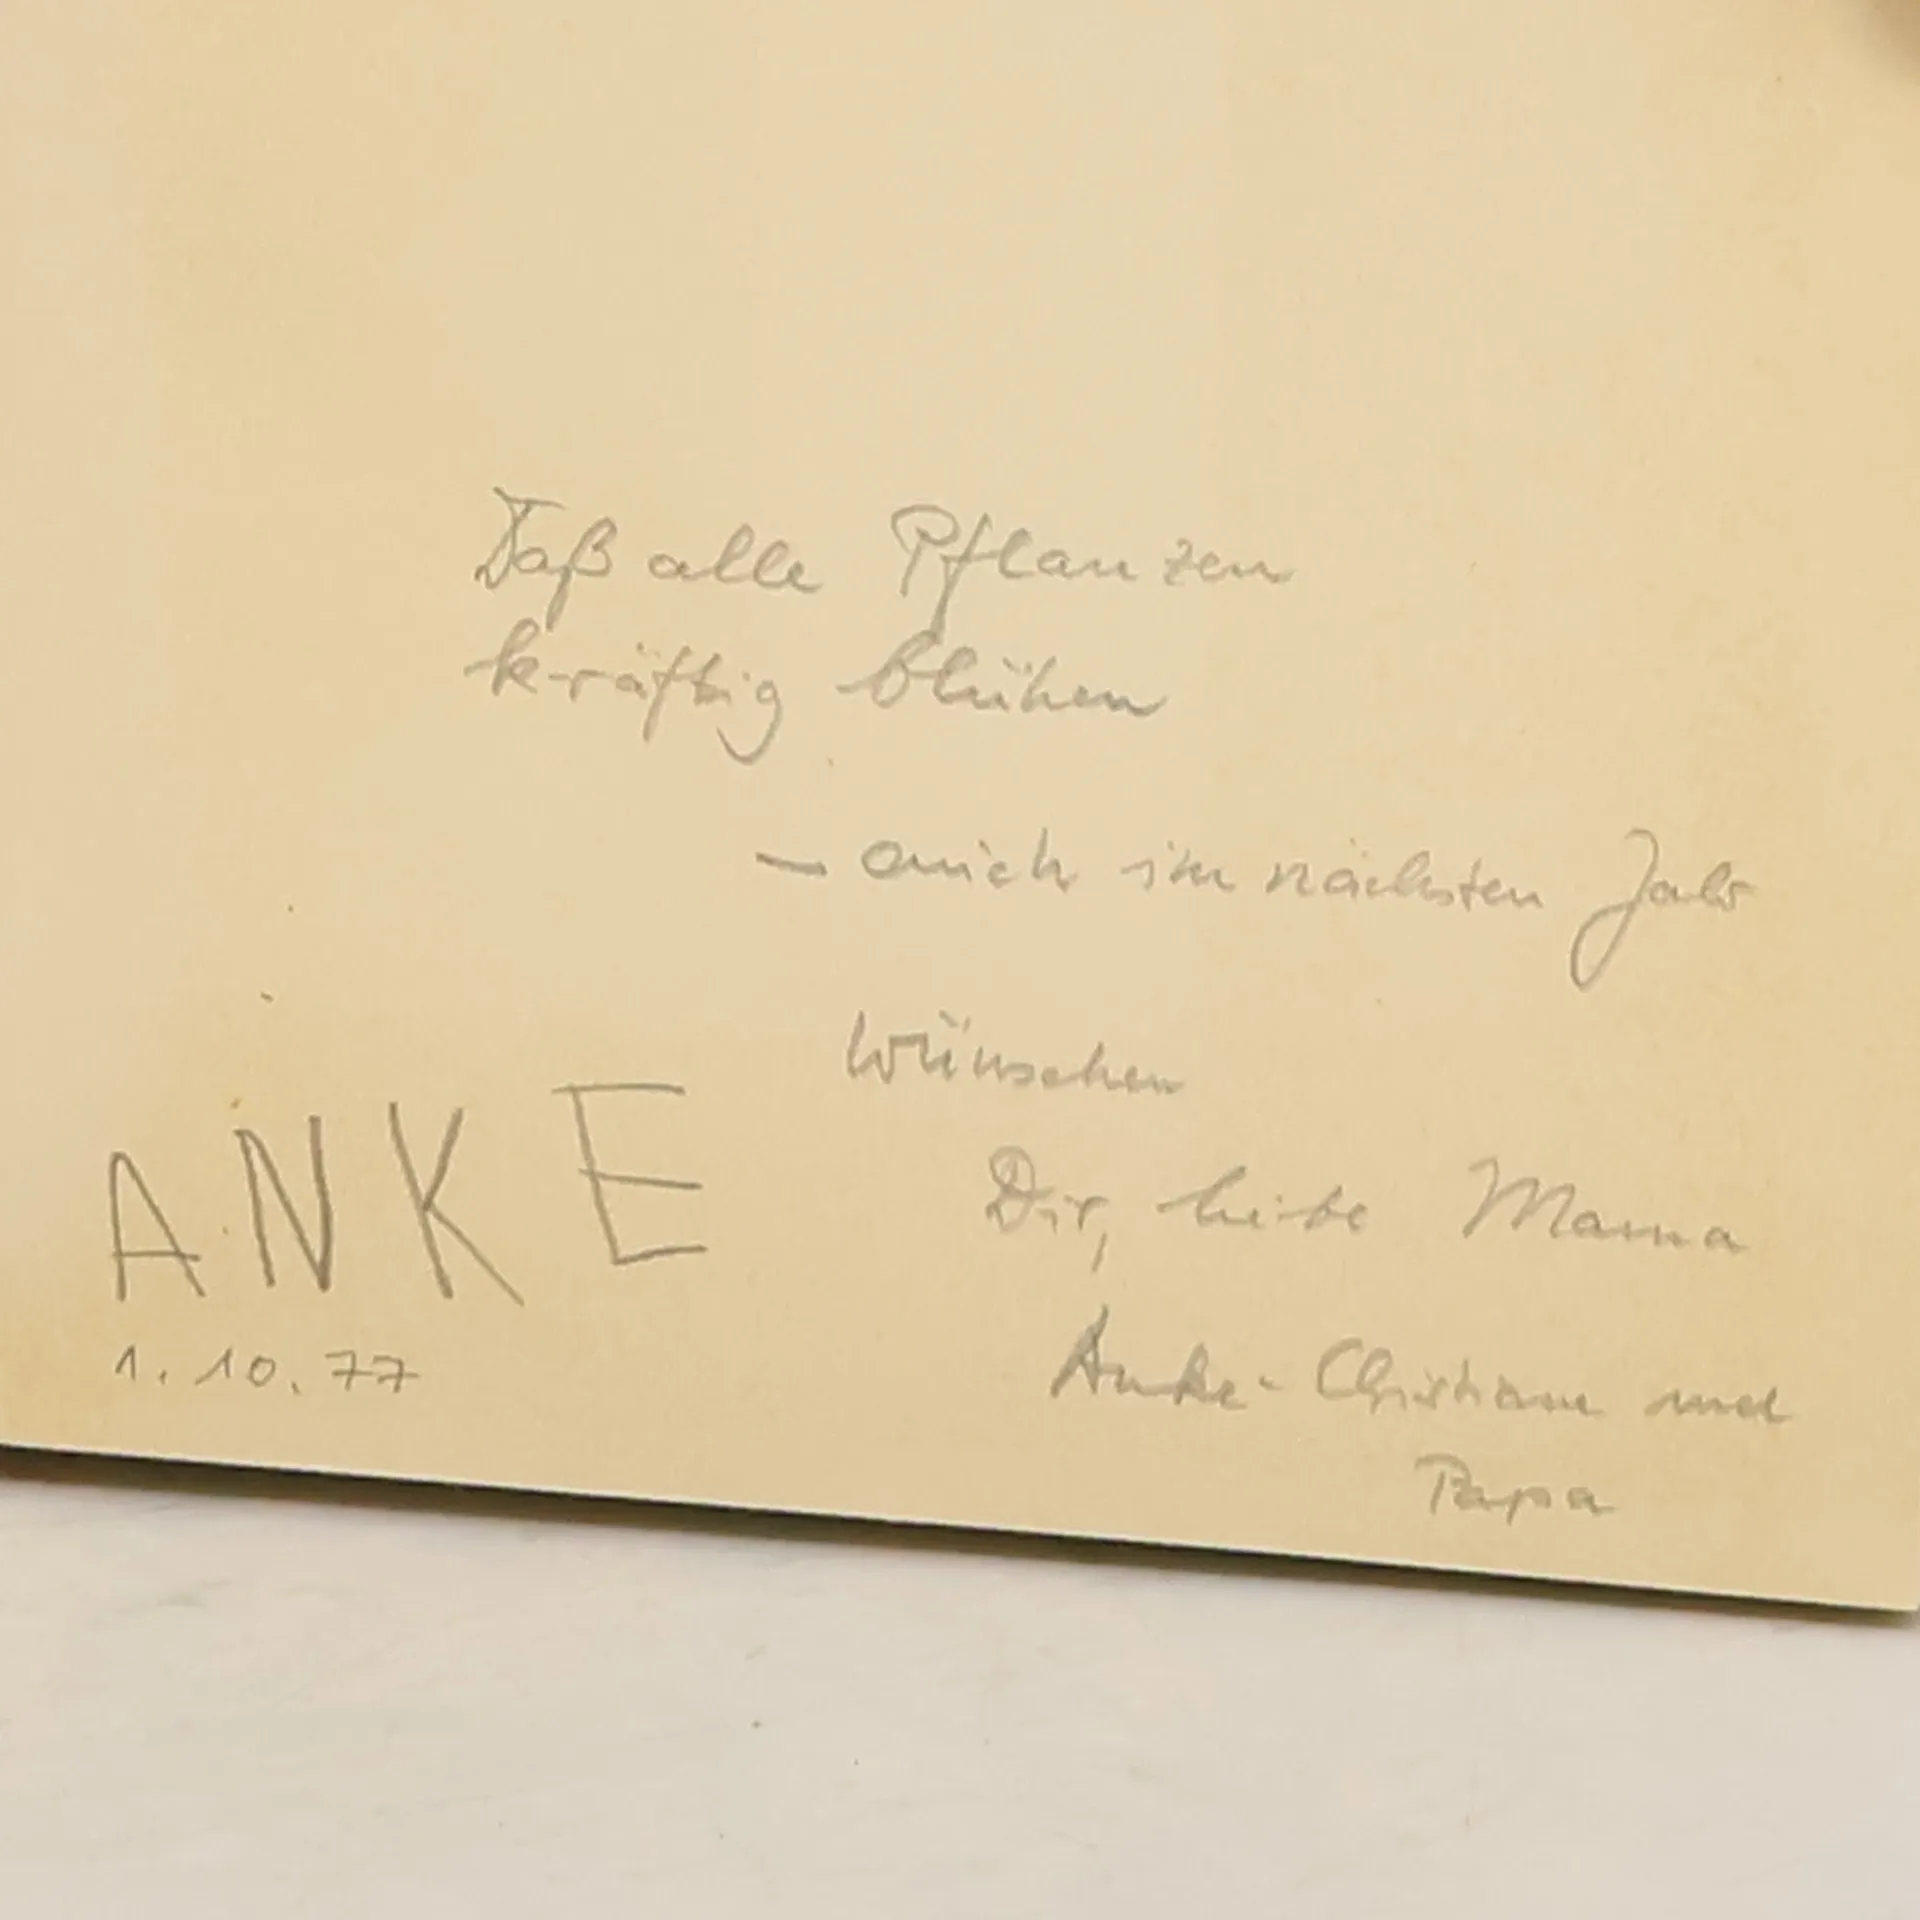 Daß alle Pflanzen
kräftig blühen
– auch im nächsten Jahr
wünschen
Dir, liebe Mama
Anke-Christiane und
Papa
ANKE
1.10.77